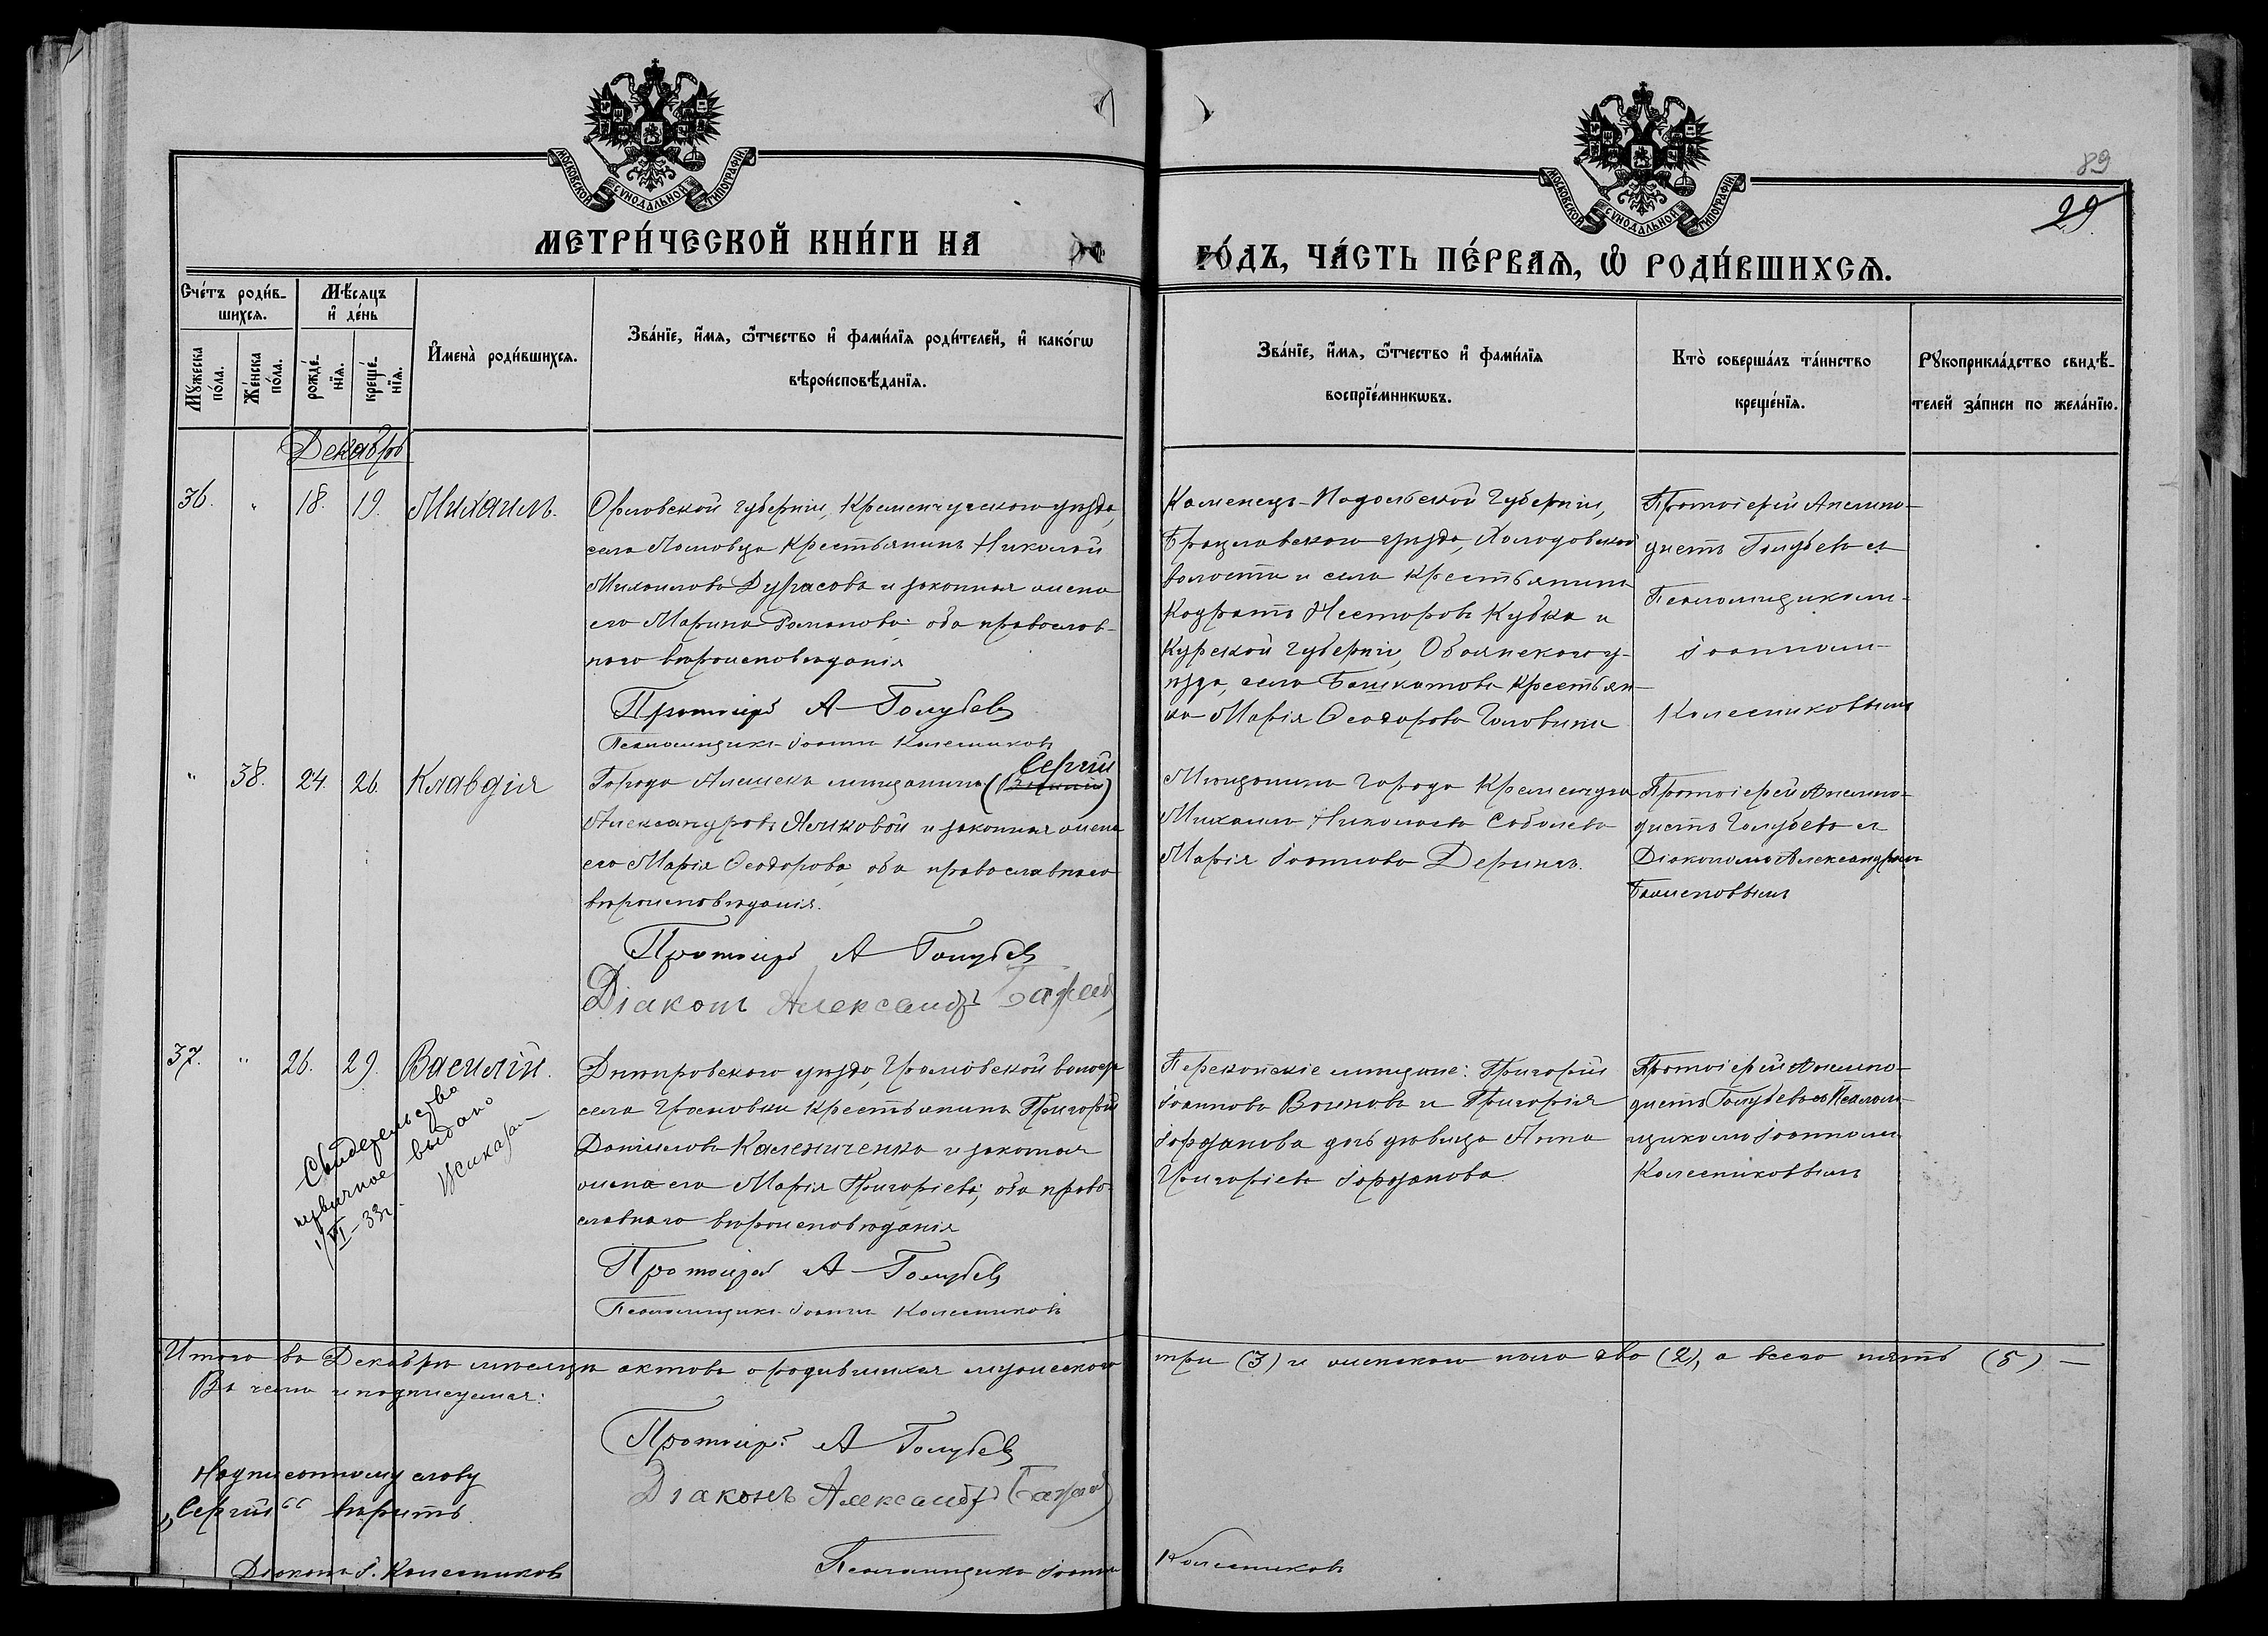 89
29
МОСКОВСКОЙ СѴНОДАЛЬНОЙ ТИПОГРАФІИ
МОСКОВСКОЙ СѴНОДАЛЬНОЙ ТИПОГРАФІИ
МЕТРИ́ЧЕСКОЙ КНИ́ГИ НА
ГО́ДЪ, ЧА́СТЬ ПЕ́РВАѦ, Ѡ҆ РОДИ́ВШИХСѦ.
Сче́тъ роди́в-
шихсѧ.
Мꙋ́жеска по́ла.
Же́нска по́ла.
Мѣ́сяцъ
и҆ де́нь
рожде́-
нїѧ.
креще́-
нїѧ.
И҆мена̀ роди́вшихсѧ.
Зва́нїе, и҆́мѧ, ѻ҆́тчество и҆ фами́лїѧ роди́телей, и҆ како́гѡ
вѣроисповѣ́данїѧ.
Зва́нїе, и҆́мѧ, ѻ҆́тчество и҆ фами́лїѧ
воспрїе́мникѡвъ.
Кто̀ соверша́лъ та́инство
креще́нїѧ.
Рꙋкоприкла́дство свидѣ́-
телей за́писи по жела́нїю.
Декабрь
36. " 18. 19. Михаилъ.
Орловской губерніи, Кременчугского уѣзда,
села Ломовца Крестьянинъ Николай
Михаиловъ Дурасовъ и законная жена
его Марина Романова оба православ-
наго вѣроисповѣданія
Протоіерей А Голубев
Псаломщикъ Іоаннъ Колесниковъ
Каменецъ-Подольской Губерніи,
Брацлавского уѣзда, Холодовской
волости и села Крестьянинъ
Кодратъ Несторовъ Кубка и
Курской губерніи, Обоянского у-
ѣзда, села Башкатова Крестьян-
ка Марія Ѳеодорова Головина
Протоіерей Аполло-
дистъ Голубевъ съ
Псаломщикомъ
Іоанномъ
Колесниковымъ
" 38. 24. 26. Клавдія
Города Алешекъ мѣщанинъ Сергій
Александровъ Ямковой и законная жена
его Марія Ѳеодорова, оба православнаго
вѣроисповѣданія.
Протоіерей А Голубев
Діаконъ Александръ
Мѣщанинъ города Кременчуга
Михаилъ Николаевъ Соболевъ
Марія Іоаннова Деринъ.
Протоіерей Аполло-
дистъ Голубевъ съ
Діакономъ Александромъ
37. " 26. 29. Василій.
Днѣпровского уѣзда, Громовской волости
села Громовки Крестьянинъ Григорій
Даниловъ Калениченко и законная
жена его Марія Григоріева, оба право-
славнаго вѣроисповѣданія
Протоіерей А Голубев
Псаломщикъ Іоаннъ Колесниковъ
Перекопскіе мѣщане: Григорій
Іоанновъ Воиновъ и Григорія
Іорданова дочь дѣвица Анна
Григоріева Іорданова
Протоіерей Аполло-
дистъ Голубевъ съ Псалом-
щикомъ Іоанномъ
Колесниковымъ
Свидетельство
первичное выдано
1/VI-33г.
Итого въ Декабрѣ мѣсяцѣ актовъ о родившихся мужеского три (3) и женского пола два (2), а всего пять (5) —
Въ чемъ и подписуемся:
Протоіерей А Голубев
Діаконъ Александръ
Псаломщикъ Іоаннъ Колесниковъ
Надписанному слову
„Сергій“ вѣрить
Діаконъ І. Колесниковъ